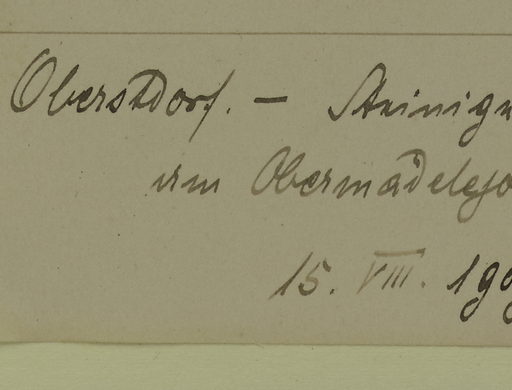 Oberstdorf. — Steinige
um Obermädelejo
15. VIII. 190